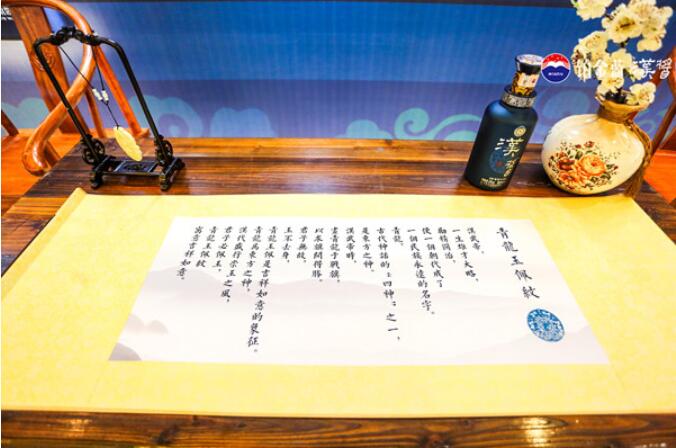 漢醬
漢
青龍玉佩紋
漢武帝，
一生雄才大略，
勵精圖治，
使一個朝代成了
一個民族永遠的名字。
青龍，
古代神話的“四神”之一，
是東方之神。
漢武帝時，
畫青龍于戰旗，
以求旗開得勝。
君子無故，
玉不去身，
青龍玉佩是吉祥如意的象征。
青龍爲東方之神，
漢代盛行崇玉之風，
君子必佩玉，
青龍玉佩紋
寓意吉祥如意。